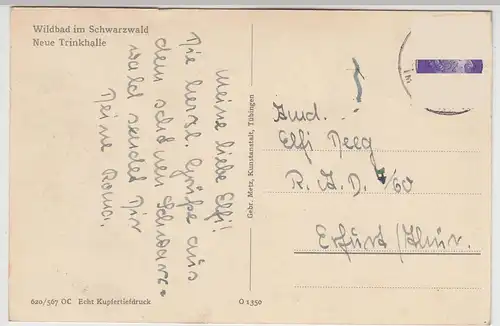 Wildbad im Schwarzwald
Neue Trinkhalle
Meine liebe Elfi!
Die herzl. Grüße aus
dem schönen Schwarz-
wald sendet Dir
Deine
620/567 OC Echt Kupfertiefdruck
O 1350
Gebr. Metz, Kunstanstalt, Tübingen
Elfi Deeg
R. A. D. /60
Erfurt /Thür.